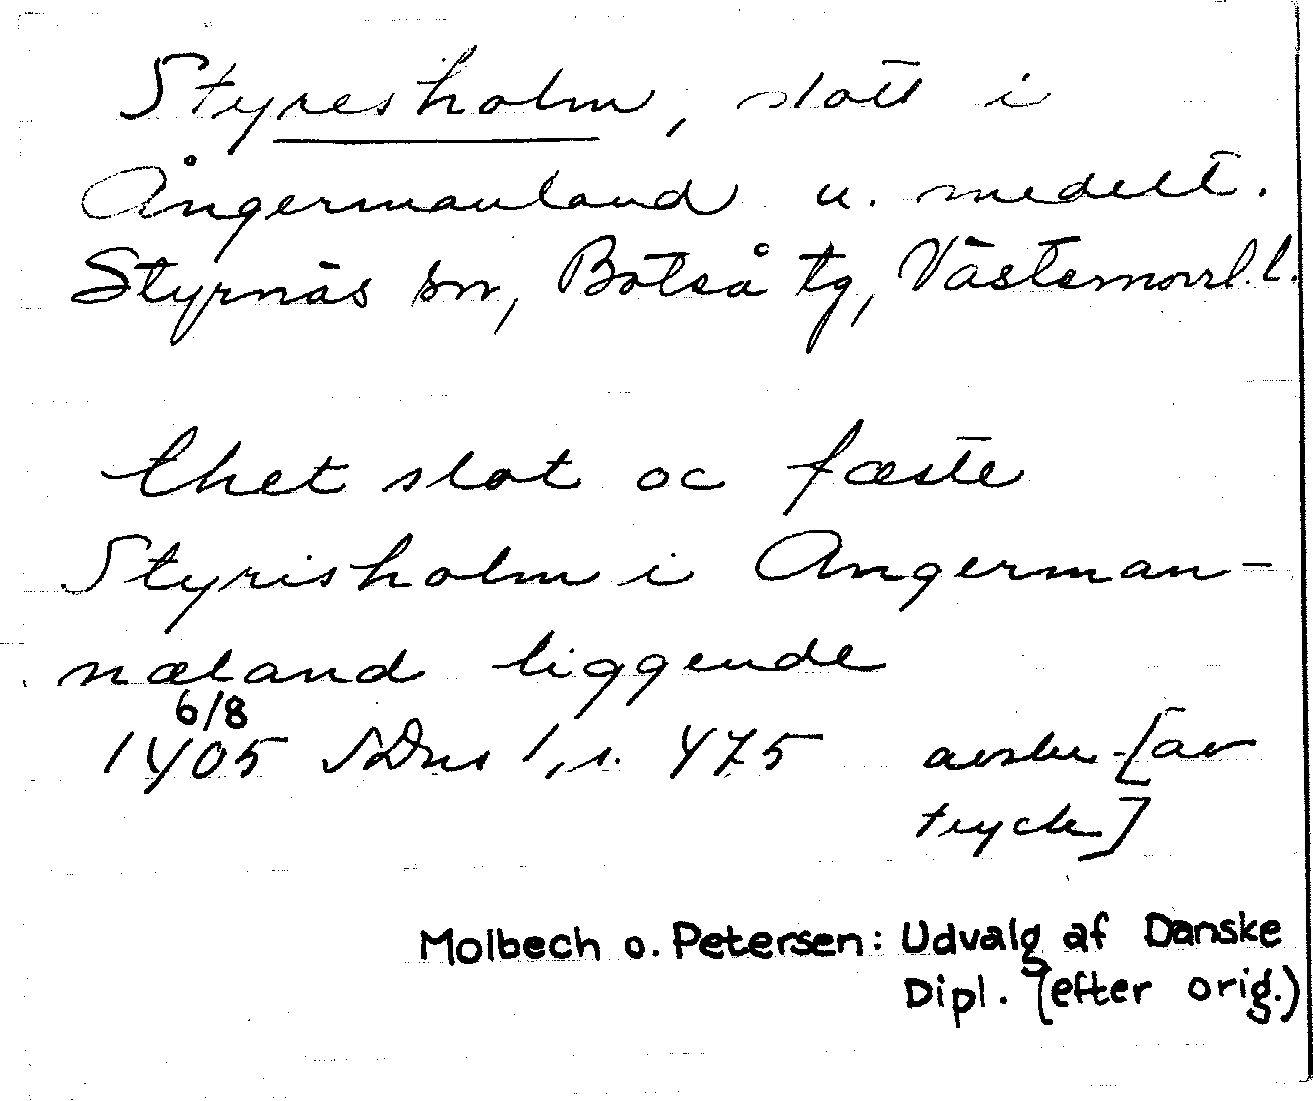 Styresholm, slott i
Ångermanland u. medelt.
Styrnäs sn, Boteå tg, Västernorrl. l.
thet slot oc fæste
Styrisholm i Angerman-
næland liggende
6/8
1405 SDns 1, s. 475 avskr. [av
tryck]
Molbech o. Petersen: Udvalg af Danske
Dipl. (efter orig.)